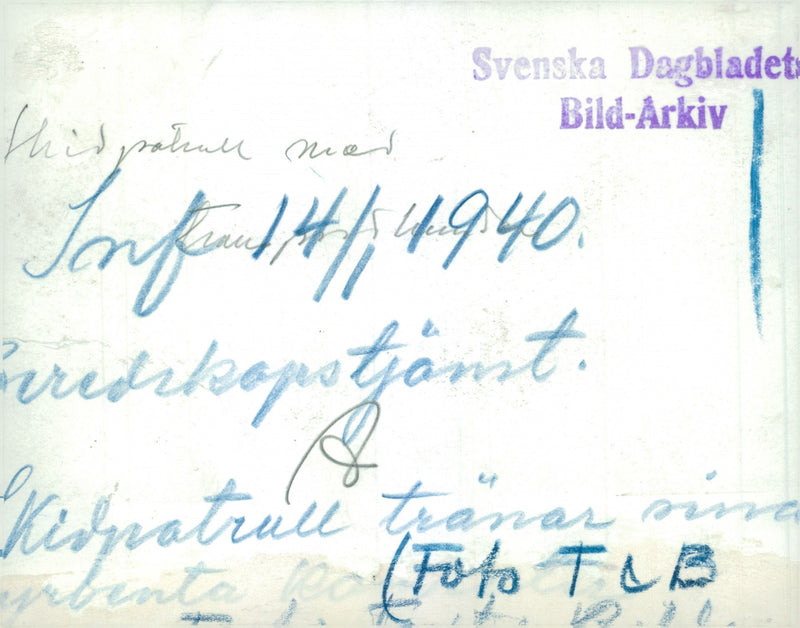 Svenska Dagbladets
Bild-Arkiv
Skidpatrull med
transporthundar
Inf 14/1 1940.
Beredskapstjänst.
Skidpatrull tränar sina
fyrbenta
(Foto T & B